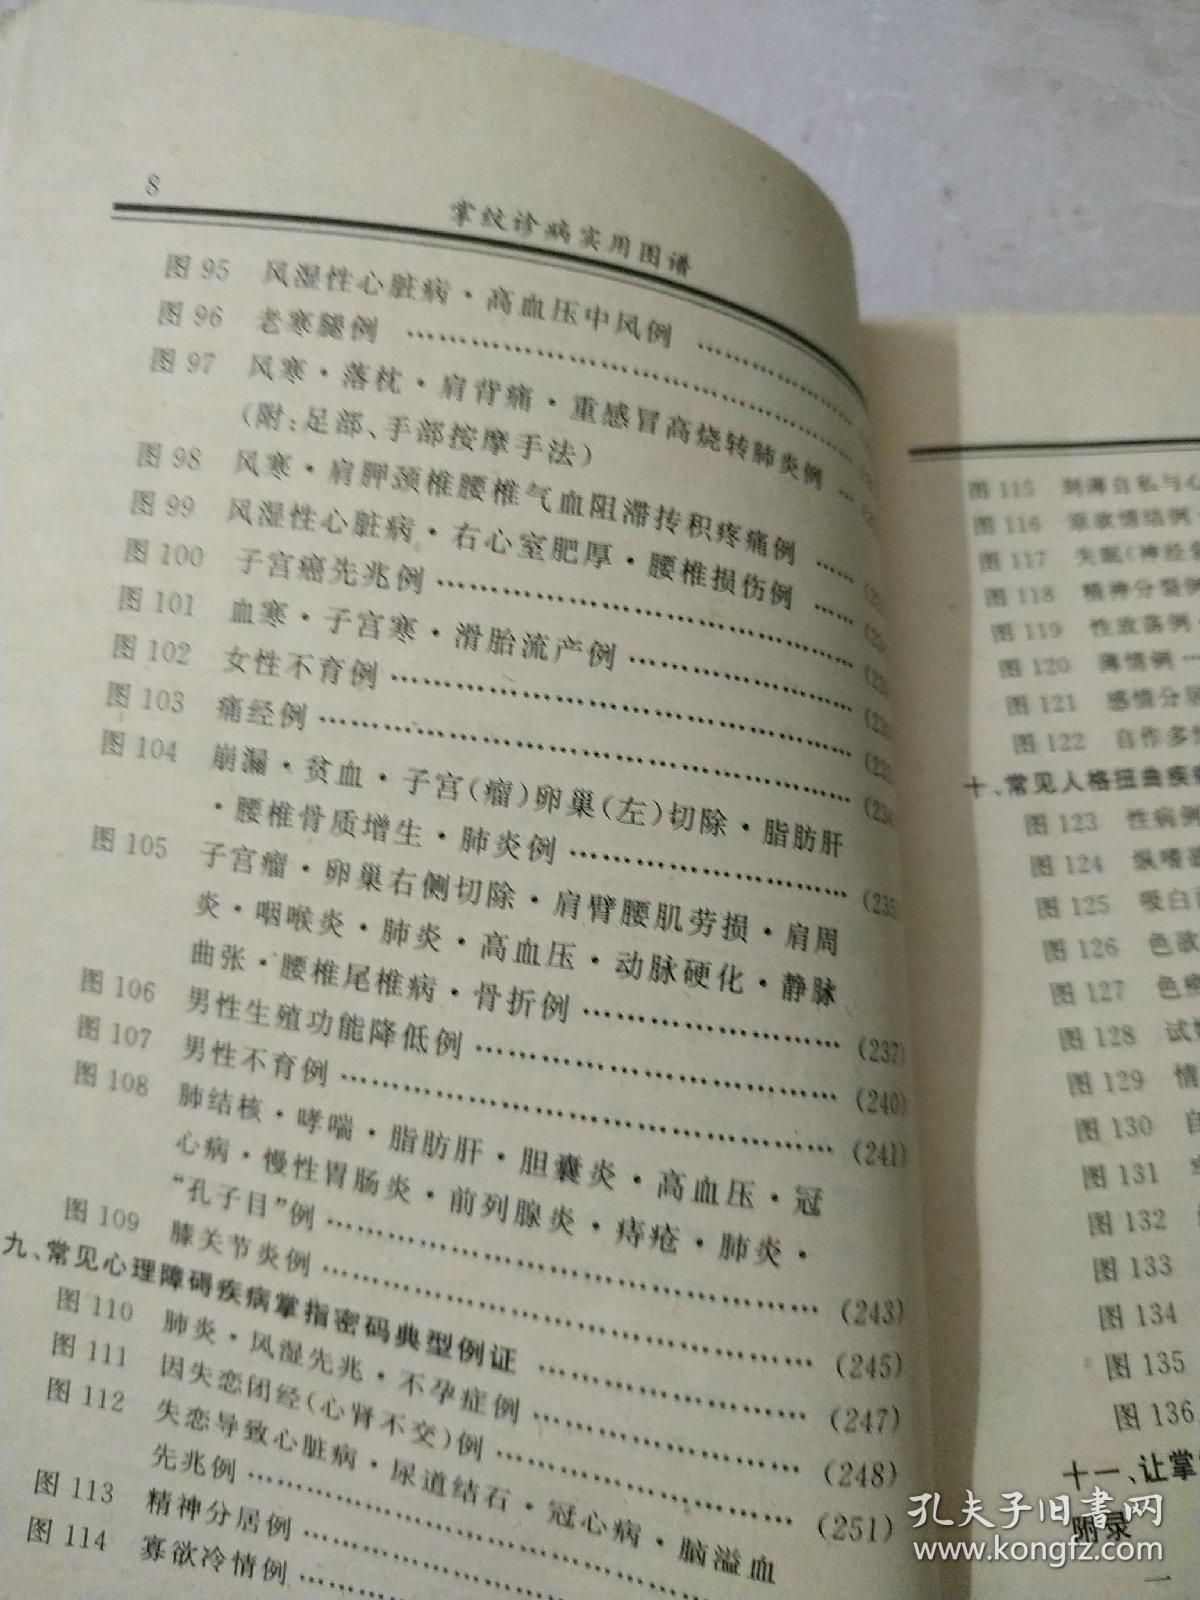 8
掌纹诊病实用图谱
图 95 风湿性心脏病·高血压中风例 ……
图 96 老寒腿例 ……
图 97 风寒·落枕·肩背痛·重感冒高烧转肺炎例 …
(附:足部、手部按摩手法)
图 98 风寒·肩胛颈椎腰椎气血阻滞抟积疼痛例 ……
图 99 风湿性心脏病·右心室肥厚·腰椎损伤例 ……
图 100 子宫癌先兆例 ……
图 101 血寒·子宫寒·滑胎流产例 ……
图 102 女性不育例 ……
图 103 痛经例 ……
图 104 崩漏·贫血·子宫(瘤)卵巢(左)切除·脂肪肝
·腰椎骨质增生·肺炎例 …… (235)
图 105 子宫瘤·卵巢右侧切除·肩臂腰肌劳损·肩周
炎·咽喉炎·肺炎·高血压·动脉硬化·静脉
曲张·腰椎尾椎病·骨折例 …… (237)
图 106 男性生殖功能降低例 …… (240)
图 107 男性不育例 …… (241)
图 108 肺结核·哮喘·脂肪肝·胆囊炎·高血压·冠
心病·慢性胃肠炎·前列腺炎·痔疮·肺炎·
“孔子目”例 …… (243)
图 109 膝关节炎例 …… (245)
九、常见心理障碍疾病掌指密码典型例证 …… (247)
图 110 肺炎·风湿先兆·不孕症例 …… (248)
图 111 因失恋闭经(心肾不交)例 …… (251)
图 112 失恋导致心脏病·尿道结石·冠心病·脑溢血
先兆例 ……
图 113 精神分居例 ……
图 114 寡欲冷情例 ……
图 115 刻薄自私与心
图 116
图 117 失眠(神经
图 118 精神分裂例
图 119 性放荡例
图 120 薄情例
图 121 感情分居
图 122 自作多情
十、常见人格扭曲疾
图 123 性病例
图 124 纵嗜
图 125 吸白
图 126 色欲
图 127 色
图 128 试
图 129 情
图 130
图 131
图 132
图 133
图 134
图 135
图 136
十一、让掌
附录
一
孔夫子旧书网
www.kongfz.com